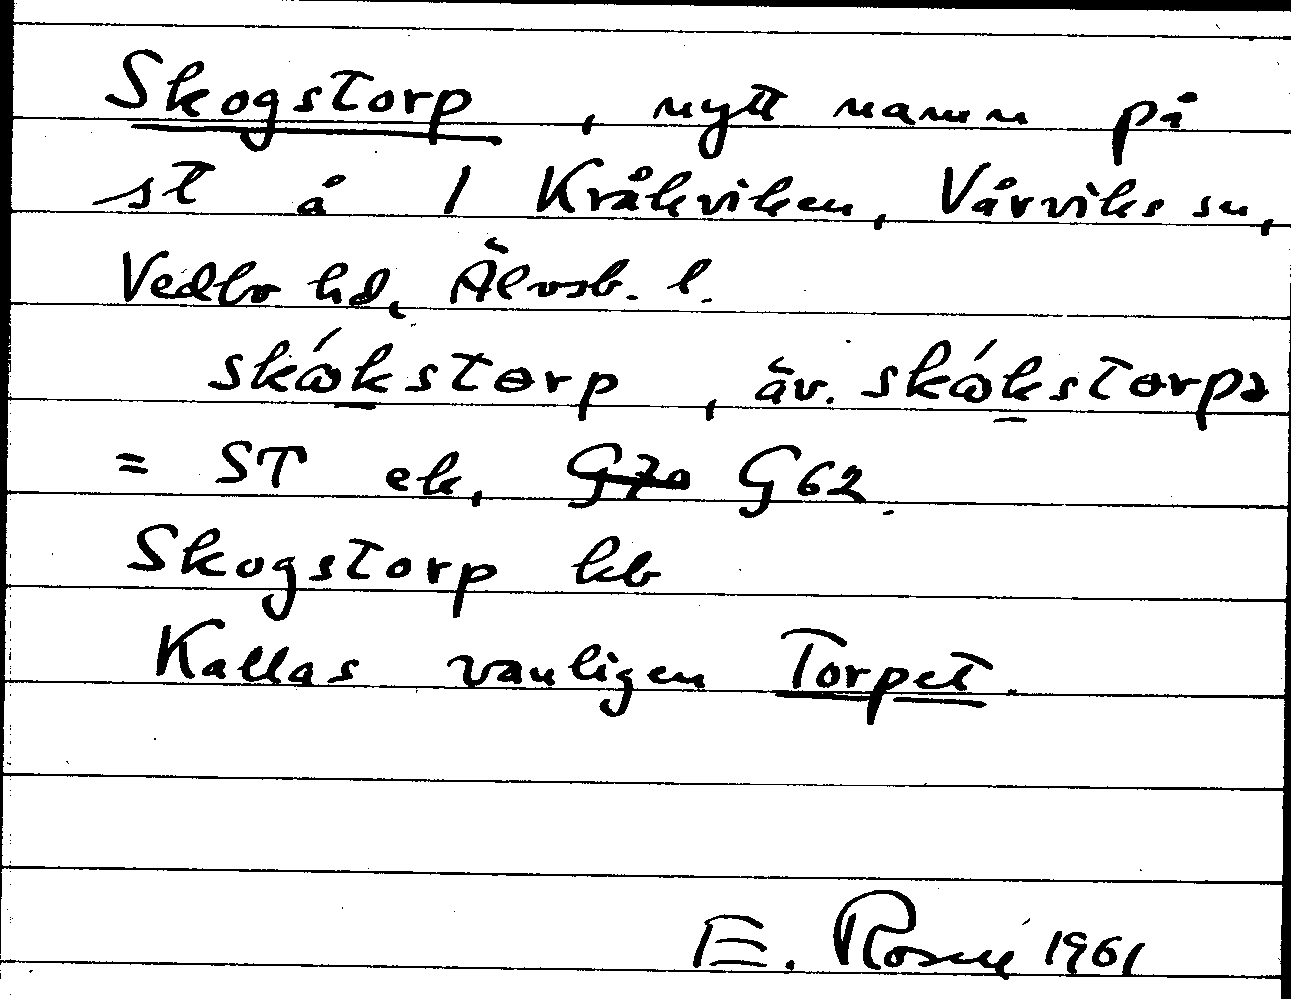 Skogstorp, nytt namn på
st å 1 Kråkviken, Vårviks sn,
Vedbo hd, Älvsb. l.
skǻkstɵrp, äv. skǻkstɵrpə
= ST ek, G70 G62.
Skogstorp kb
Kallas vanligen Torpet.
E. Rosell 1961